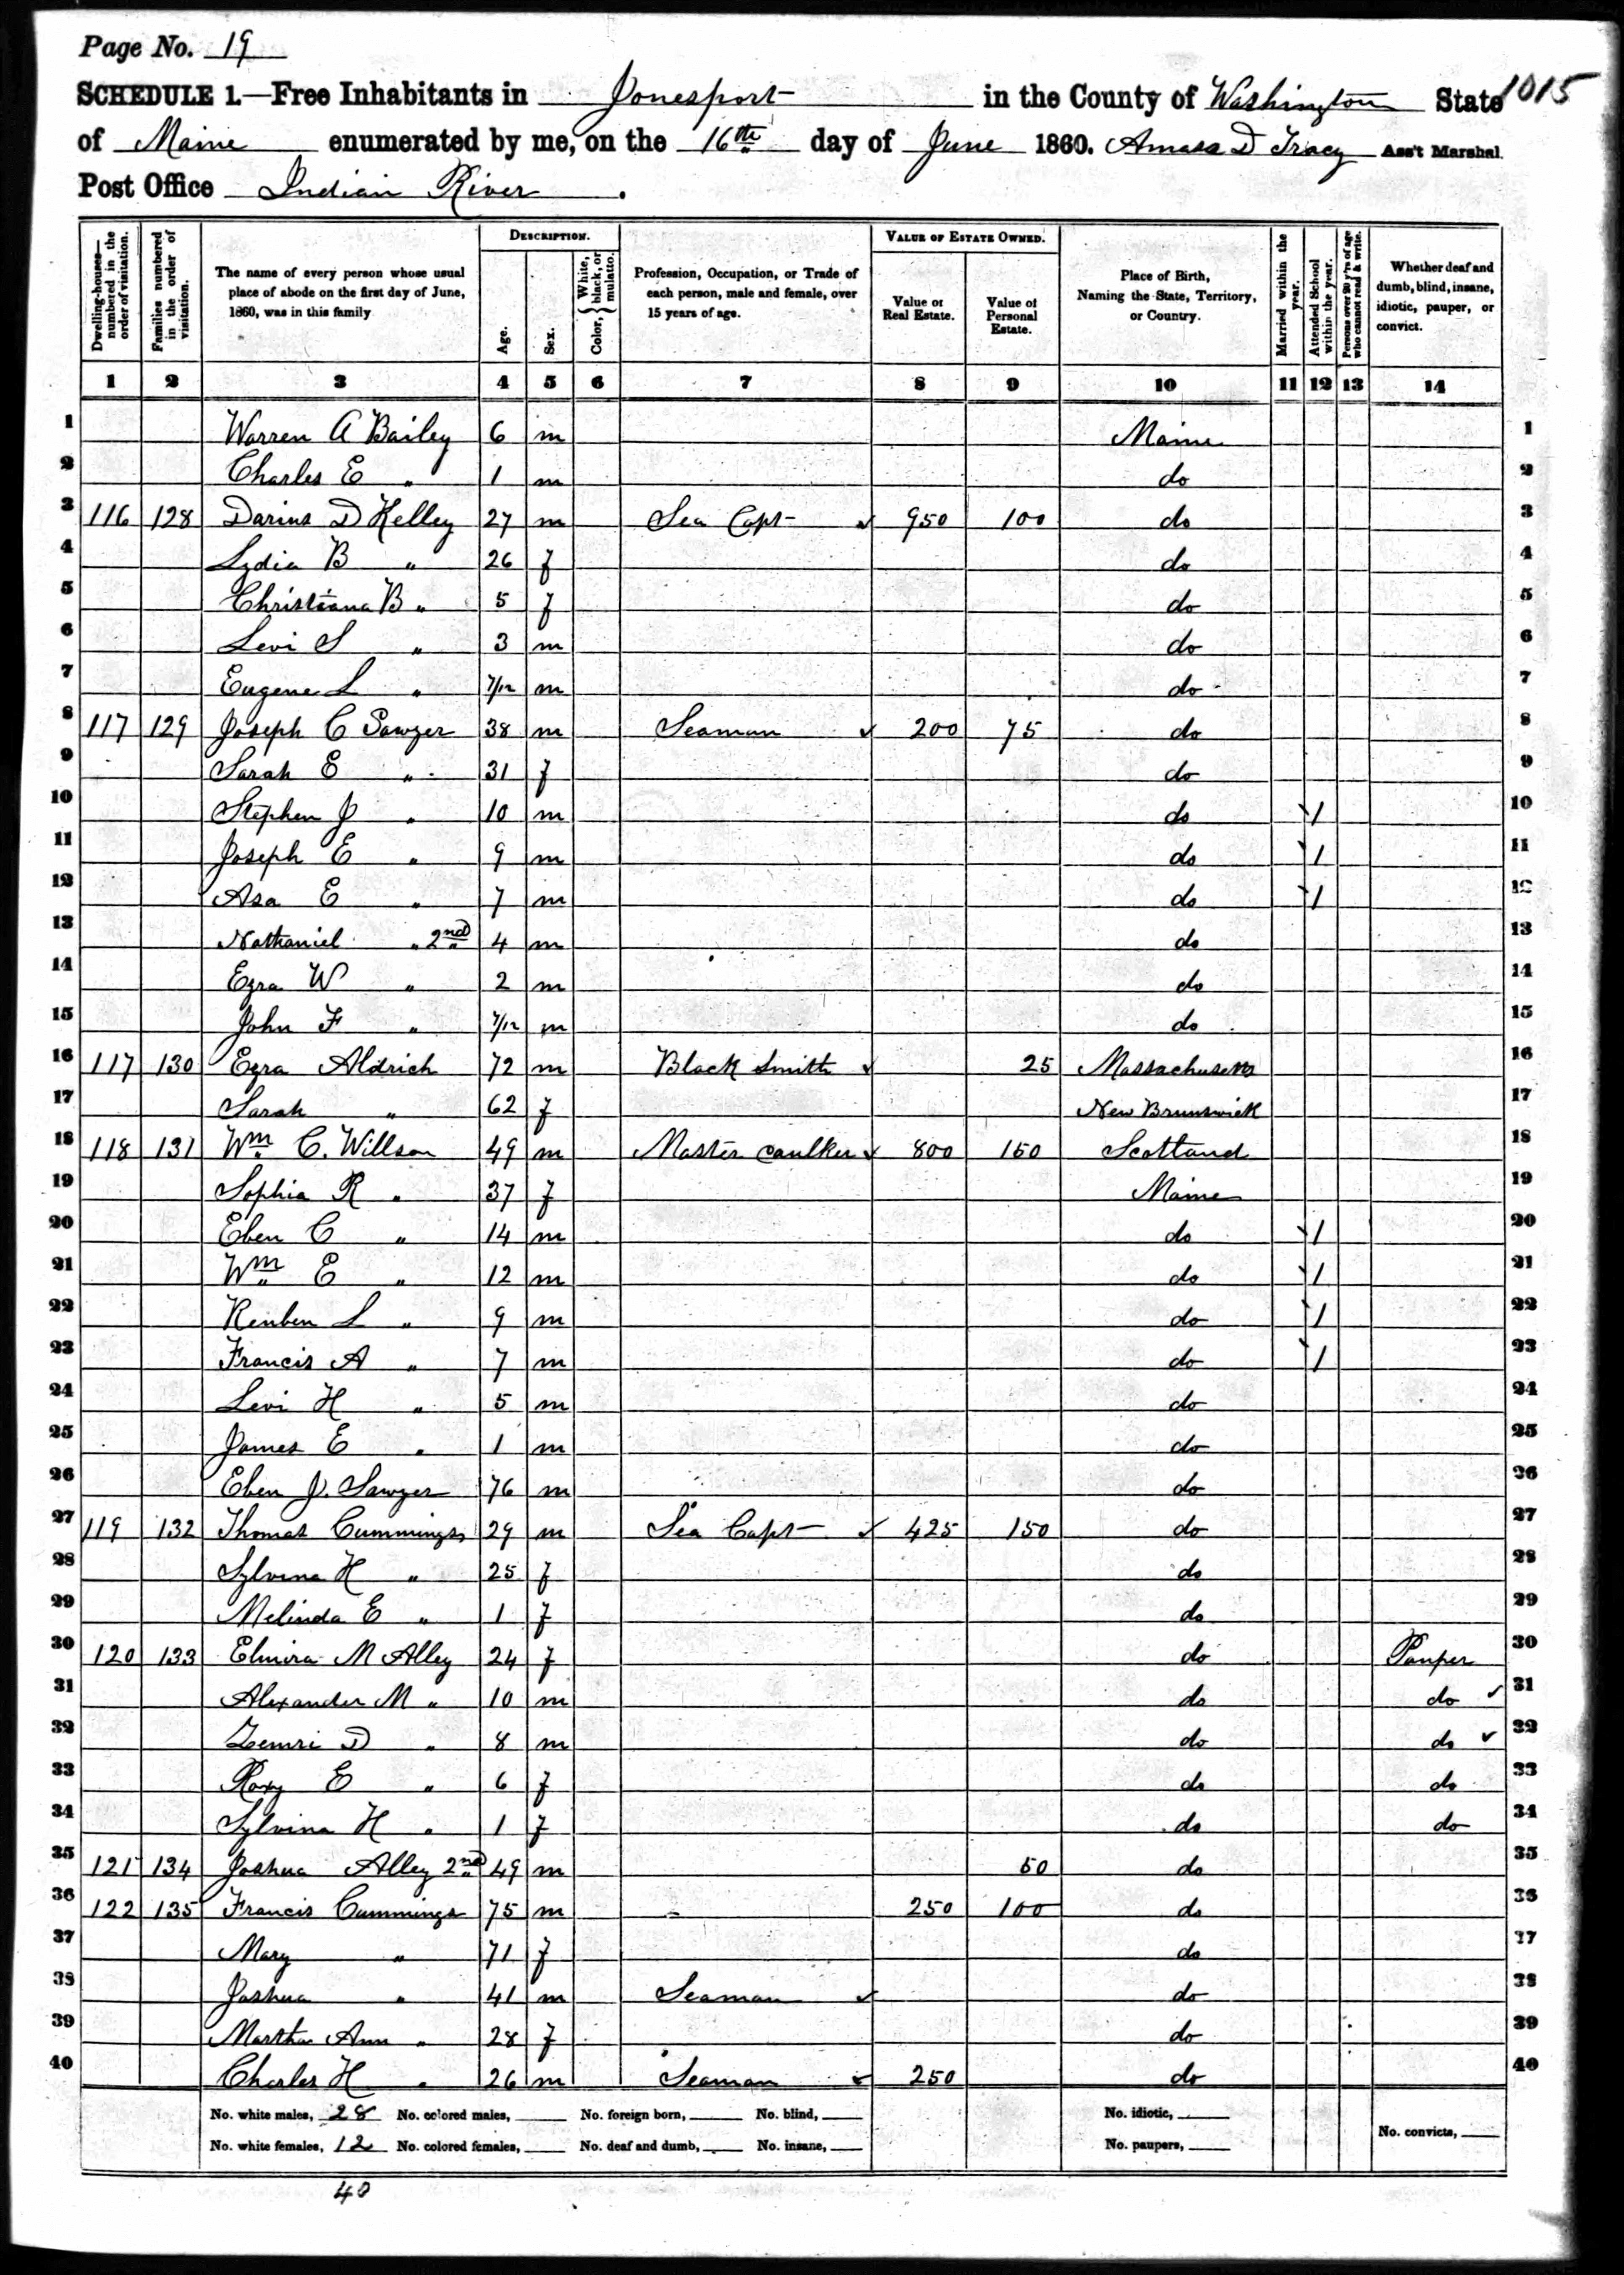 Page No. 19
SCHEDULE 1.—Free Inhabitants in Jonesport in the County of Washington State 1015
of Maine enumerated by me, on the 16th day of June 1860. Amasa D Tracy Ass't Marshal.
Post Office Indian River .
Dwelling-houses—numbered in the order of visitation. Families numbered in the order of visitation. The name of every person whose usual place of abode on the first day of June, 1860, was in this family DESCRIPTION. Age. Sex. Color, { White, black, or mulatto. Profession, Occupation, or Trade of each person, male and female, over 15 years of age. VALUE OF ESTATE OWNED. Value of Real Estate. Value of Personal Estate. Place of Birth, Naming the State, Territory, or Country. Married within the year. Attended School within the year. Persons over 20 y'rs of age who cannot read & write. Whether deaf and dumb, blind, insane, idiotic, pauper, or convict.
1 2 3 4 5 6 7 8 9 10 11 12 13 14
1 Warren A Bailey 6 m Maine 1
2 Charles E " 1 m do 2
3 116 128 Darius D Kelley 27 m Sea Capt 950 100 do 3
4 Lydia B " 26 f do 4
5 Christiana B " 5 f do 5
6 Levi S " 3 m do 6
7 Eugene L " 7/12 m do 7
8 117 129 Joseph C Sawyer 38 m Seaman 200 75 do 8
9 Sarah E " 31 f do 9
10 Stephen J " 10 m do 1 10
11 Joseph E " 9 m do 1 11
12 Asa E " 7 m do 1 12
13 Nathaniel " 2nd 4 m do 13
14 Ezra W " 2 m do 14
15 John F " 7/12 m do 15
16 117 130 Ezra Aldrich 72 m Black Smith 25 Massachusetts 16
17 Sarah " 62 f New Brunswick 17
18 118 131 Wm C. Willson 49 m Master caulker 800 150 Scotland 18
19 Sophia R " 37 f Maine 19
20 Eben C " 14 m do 1 20
21 Wm E " 12 m do 1 21
22 Reuben L " 9 m do 1 22
23 Francis A " 7 m do 1 23
24 Levi H " 5 m do 24
25 James E " 1 m do 25
26 Eben J. Sawyer 76 m do 26
27 119 132 Thomas Cummings 29 m Sea Capt 425 150 do 27
28 Sylvina H " 25 f do 28
29 Melinda E " 1 f do 29
30 120 133 Elmira M Alley 24 f do Pauper 30
31 Alexander M " 10 m do do 31
32 Zemri D " 8 m do do 32
33 Roxy E " 6 f do do 33
34 Sylvina H " 1 f do do 34
35 121 134 Joshua Alley 2nd 49 m 50 do 35
36 122 135 Francis Cummings 75 m 250 100 do 36
37 Mary " 71 f do 37
38 Joshua " 41 m Seaman do 38
39 Martha Ann " 28 f do 39
40 Charles H " 26 m Seaman 250 do 40
No. white males, 28 No. colored males, No. foreign born, No. blind, No. idiotic,
No. white females, 12 No. colored females, No. deaf and dumb, No. insane, No. paupers, No. convicts,
40